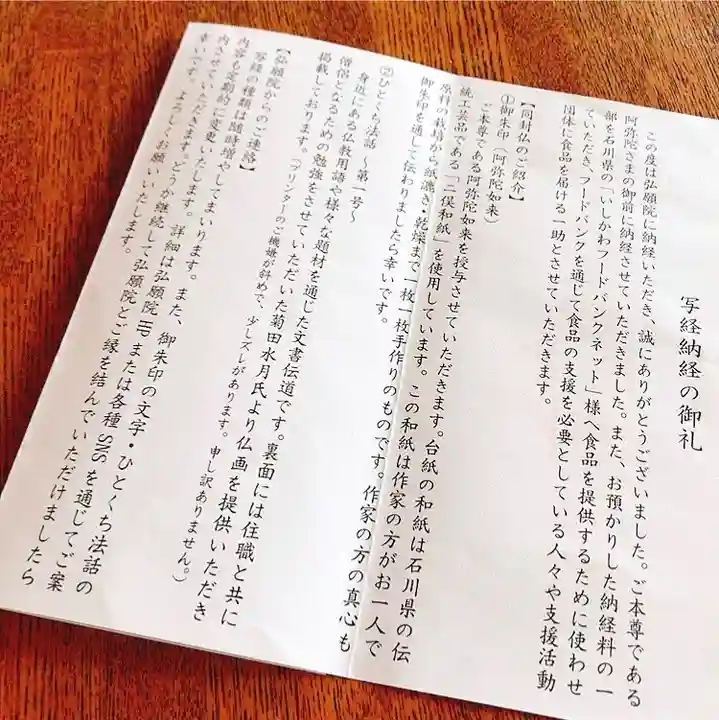 写経納経の御礼
この度は弘願院に納経いただき、誠にありがとうございました。ご本尊である
阿弥陀さまの御前に納経させていただきました。また、お預かりした納経料の一
部を石川県の「いしかわフードバンクネット」様へ食品を提供するために使わせ
ていただき、フードバンクを通じて食品の支援を必要としている人々や支援活動
団体に食品を届ける一助とさせていただきます。
【同封仏のご紹介】
①御朱印（阿弥陀如来）
ご本尊である阿弥陀如来を授与させていただきます。台紙の和紙は石川県の伝
統工芸品である「二俣和紙」を使用しています。この和紙は作家の方がお一人で
原料の栽培から紙漉き・乾燥まで一枚一枚手作りのものです。作家の方の真心も
御朱印を通して伝わりましたら幸いです。
②ひとくち法話 〜第一号〜
身近にある仏教用語や様々な題材を通じた文書伝道です。裏面には住職と共に
僧侶となるための勉強をさせていただいた菊田水月氏より仏画を提供いただき
掲載しております。（プリンターのご機嫌が斜めで、少しズレがあります。申し訳ありません。）
【弘願院からのご連絡】
写経の種類は随時増やしてまいります。また、御朱印の文字・ひとくち法話の
内容も定期的に変更いたします。詳細は弘願院HPまたは各種SNSを通じてご案
内させていただきます。どうか継続して弘願院とご縁を結んでいただけましたら
幸いです。よろしくお願いいたします。